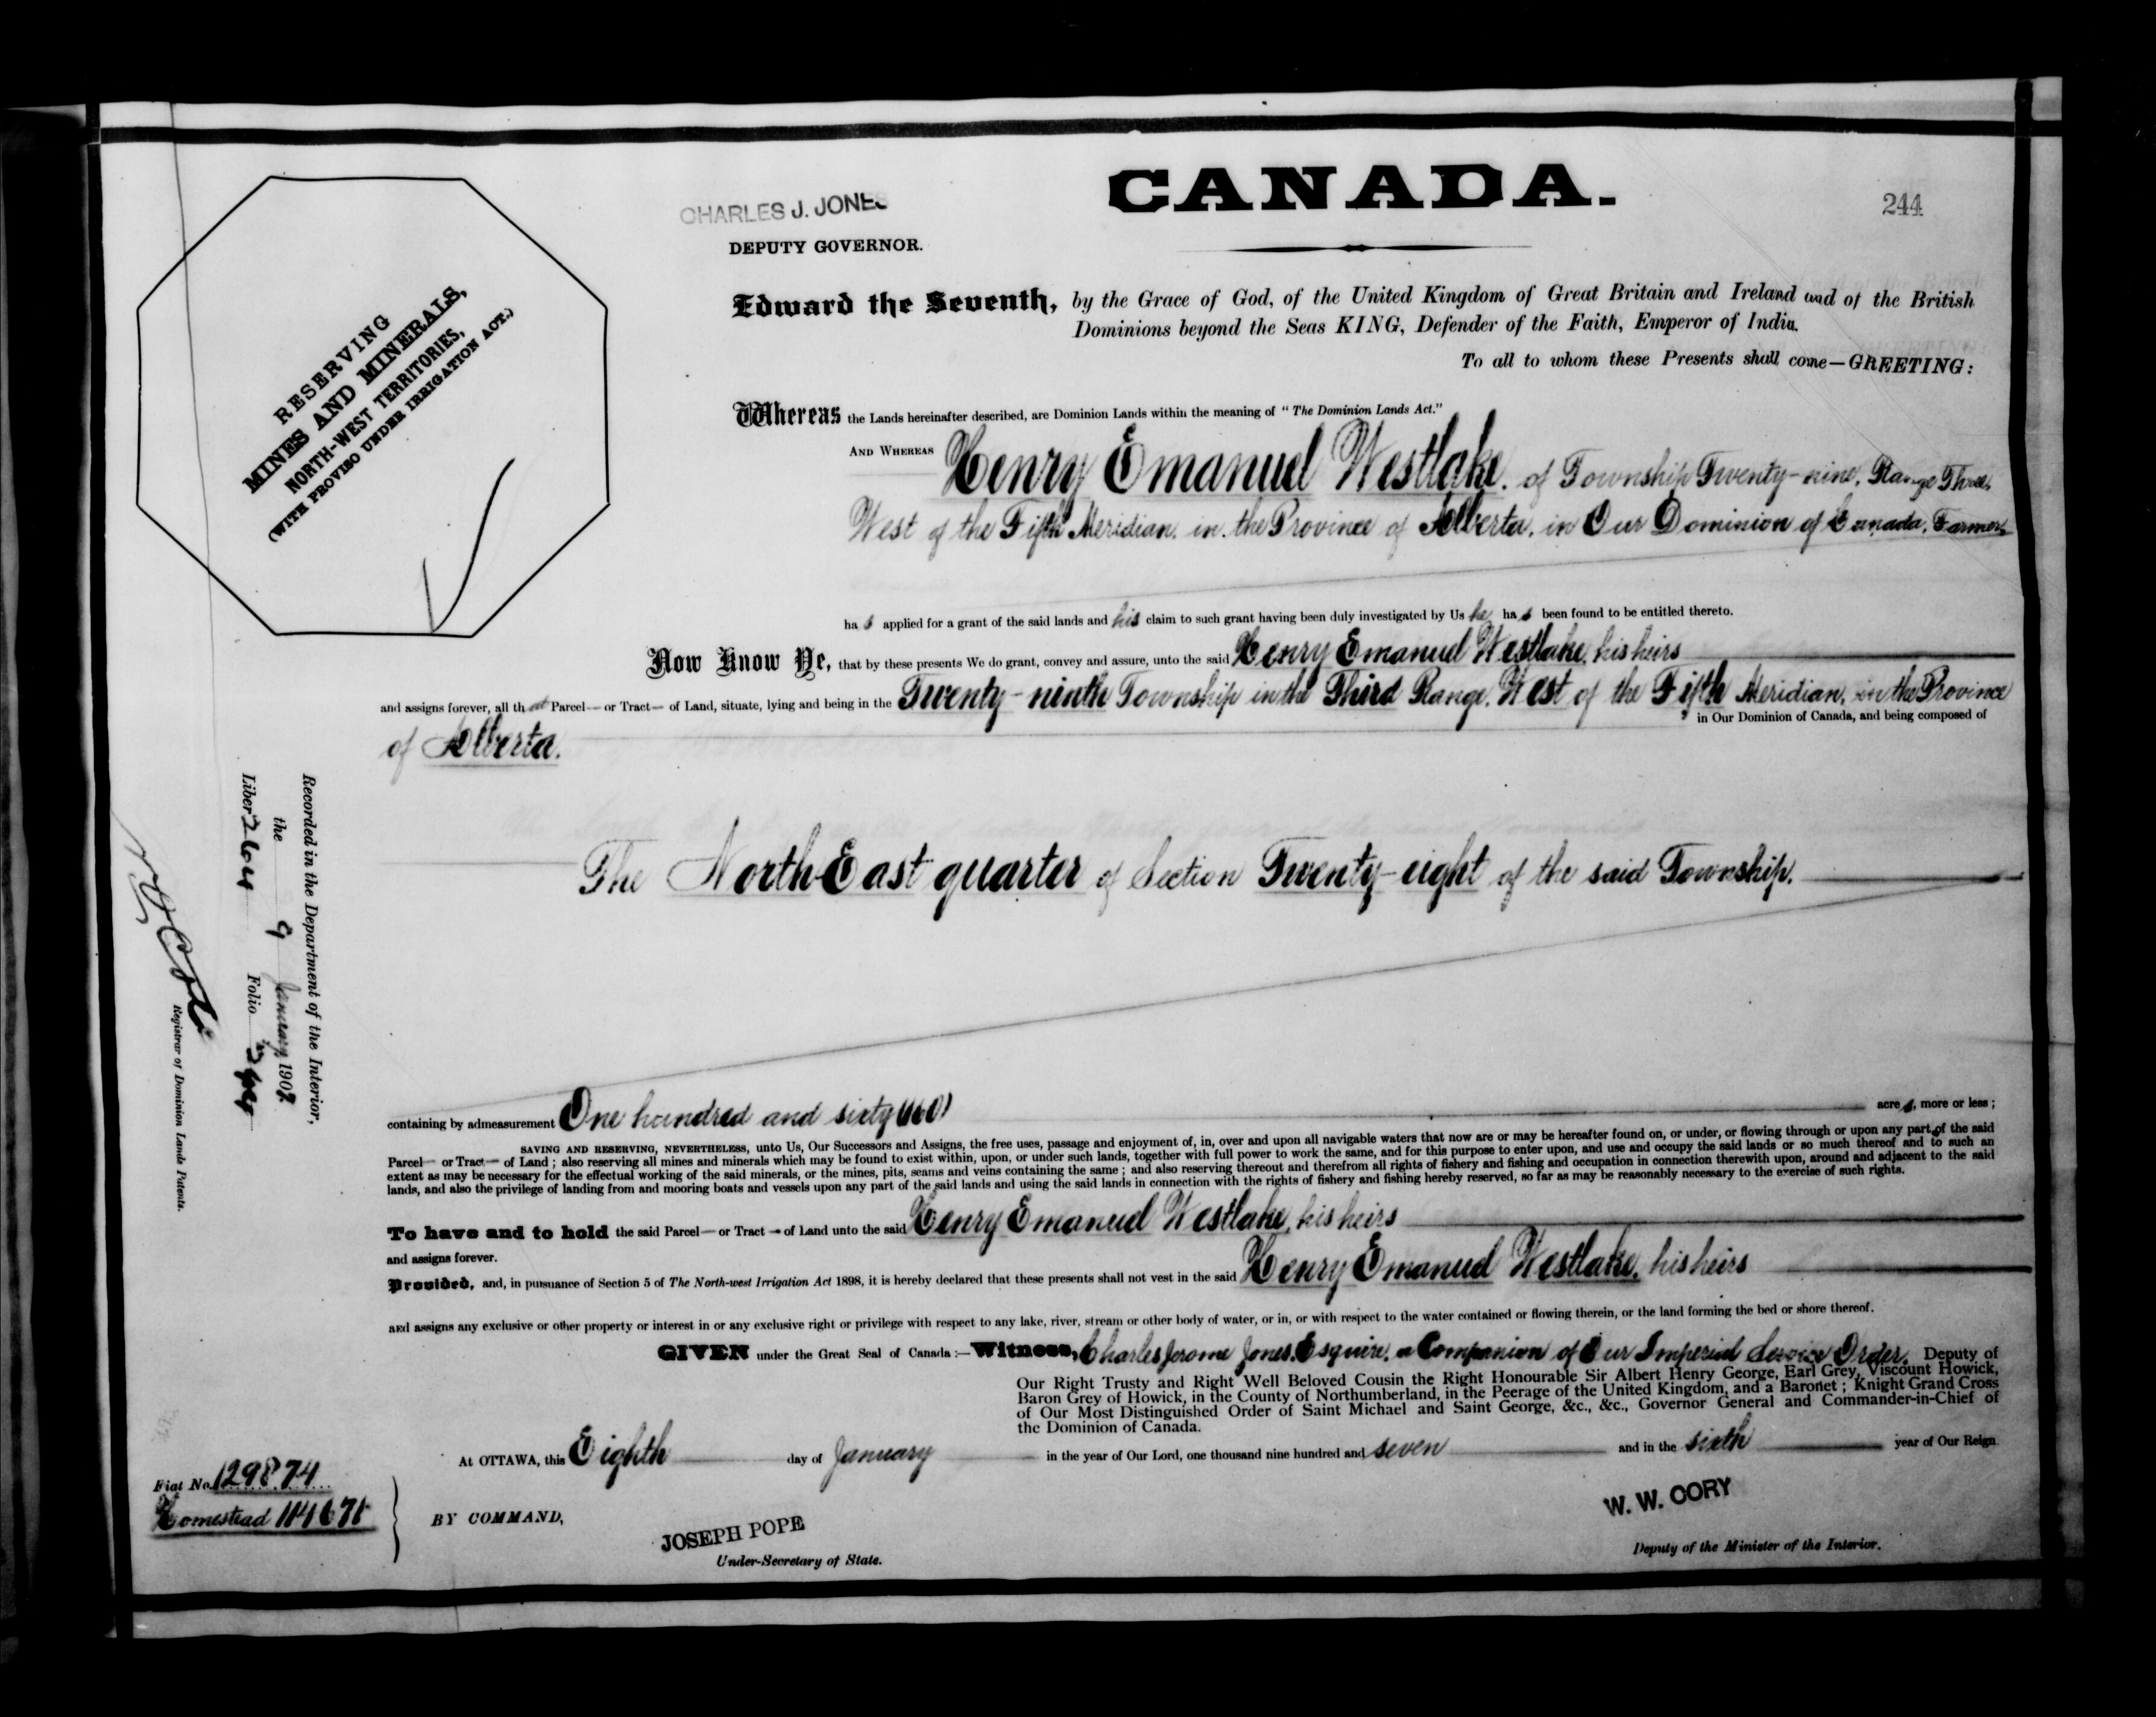 CANADA.
244
CHARLES J. JONES
DEPUTY GOVERNOR.
RESERVING
MINES AND MINERALS,
NORTH-WEST TERRITORIES,
(WITH PROVISO UNDER IRRIGATION ACT.)
Edward the Seventh, by the Grace of God, of the United Kingdom of Great Britain and Ireland and of the British
Dominions beyond the Seas KING, Defender of the Faith, Emperor of India.
To all to whom these Presents shall come—GREETING:
Whereas the Lands hereinafter described, are Dominion Lands within the meaning of "The Dominion Lands Act."
AND WHEREAS Henry Emanuel Westlake, of Township Twenty-nine, Range Three,
West of the Fifth Meridian, in the Province of Alberta, in Our Dominion of Canada, Farmer,
has applied for a grant of the said lands and his claim to such grant having been duly investigated by Us he has been found to be entitled thereto.
Now Know Ye, that by these presents We do grant, convey and assure, unto the said Henry Emanuel Westlake, his heirs
and assigns forever, all that Parcel— or Tract— of Land, situate, lying and being in the Twenty-ninth Township in the Third Range, West of the Fifth Meridian, in the Province
of Alberta. in Our Dominion of Canada, and being composed of
The North East quarter of Section Twenty-eight of the said Township.
containing by admeasurement One hundred and sixty (160) acres, more or less;
SAVING AND RESERVING, NEVERTHELESS, unto Us, Our Successors and Assigns, the free uses, passage and enjoyment of, in, over and upon all navigable waters that now are or may be hereafter found on, or under, or flowing through or upon any part of the said
Parcel— or Tract— of Land; also reserving all mines and minerals which may be found to exist within, upon, or under such lands, together with full power to work the same, and for this purpose to enter upon, and use and occupy the said lands or so much thereof and to such an
extent as may be necessary for the effectual working of the said minerals, or the mines, pits, seams and veins containing the same; and also reserving thereout and therefrom all rights of fishery and fishing and occupation in connection therewith upon, around and adjacent to the said
lands, and also the privilege of landing from and mooring boats and vessels upon any part of the said lands and using the said lands in connection with the rights of fishery and fishing hereby reserved, so far as may be reasonably necessary to the exercise of such rights.
To have and to hold the said Parcel— or Tract— of Land unto the said Henry Emanuel Westlake, his heirs
and assigns forever.
Provided, and, in pursuance of Section 5 of The North-west Irrigation Act 1898, it is hereby declared that these presents shall not vest in the said Henry Emanuel Westlake, his heirs
and assigns any exclusive or other property or interest in or any exclusive right or privilege with respect to any lake, river, stream or other body of water, or in, or with respect to the water contained or flowing therein, or the land forming the bed or shore thereof.
GIVEN under the Great Seal of Canada:—Witness, Charles Jerome Jones, Esquire, a Companion of Our Imperial Service Order, Deputy of
Our Right Trusty and Right Well Beloved Cousin the Right Honourable Sir Albert Henry George, Earl Grey, Viscount Howick,
Baron Grey of Howick, in the County of Northumberland, in the Peerage of the United Kingdom, and a Baronet; Knight Grand Cross
of Our Most Distinguished Order of Saint Michael and Saint George, &c., &c., Governor General and Commander-in-Chief of
the Dominion of Canada.
At OTTAWA, this Eighth day of January in the year of Our Lord, one thousand nine hundred and seven and in the sixth year of Our Reign
BY COMMAND,
JOSEPH POPE
Under-Secretary of State.
W. W. CORY
Deputy of the Minister of the Interior.
Fiat No. 129874
Homestead
Recorded in the Department of the Interior,
the 9 January, 1907
Liber 264 Folio
Registrar of Dominion Lands Patents.